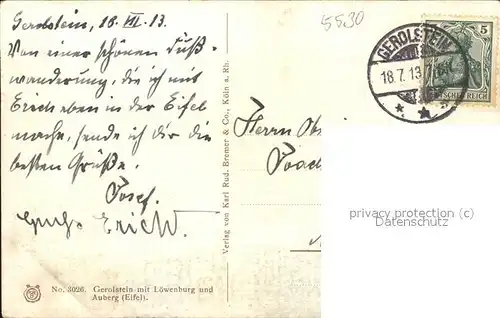 Gerolstein, 18. VII. 13.
Von einer schönen Fuß-
wanderung, die ich mit
Erich eben in der Eifel
mache, sende ich dir die
besten Grüße.
Josef.
Gruß Erich W.
No. 3026. Gerolstein mit Löwenburg und
Auberg (Eifel).
Verlag von Karl Rud. Bremer & Co., Köln a. Rh.
5530
GEROLSTEIN
18.7.13
5
DEUTSCHES REICH
Herrn
privacy protection (c)
Datenschutz